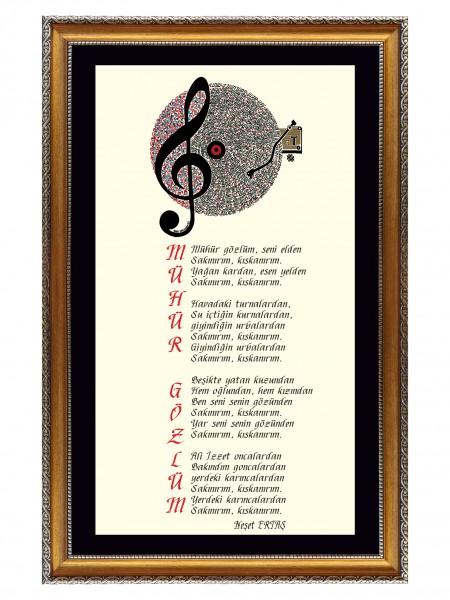 MÜHÜR GÖZLÜM
Mühür gözlüm, seni elden
Sakınırım, kıskanırım.
Yağan kardan, esen yelden
Sakınırım, kıskanırım.
Havadaki turnalardan,
Su içtiğin kurnalardan,
giyindiğin urbalardan
Sakınırım, kıskanırım.
Giyindiğin urbalardan
Sakınırım, kıskanırım.
Beşikte yatan kuzundan
Hem oğlundan, hem kızından
Ben seni senin gözünden
Sakınırım, kıskanırım.
Yar seni senin gözünden
Sakınırım, kıskanırım.
Ali İzzet oncalardan
Bakındım goncalardan
yerdeki karıncalardan
Sakınırım, kıskanırım.
Yerdeki karıncalardan
Sakınırım, kıskanırım.
Neşet ERTAŞ